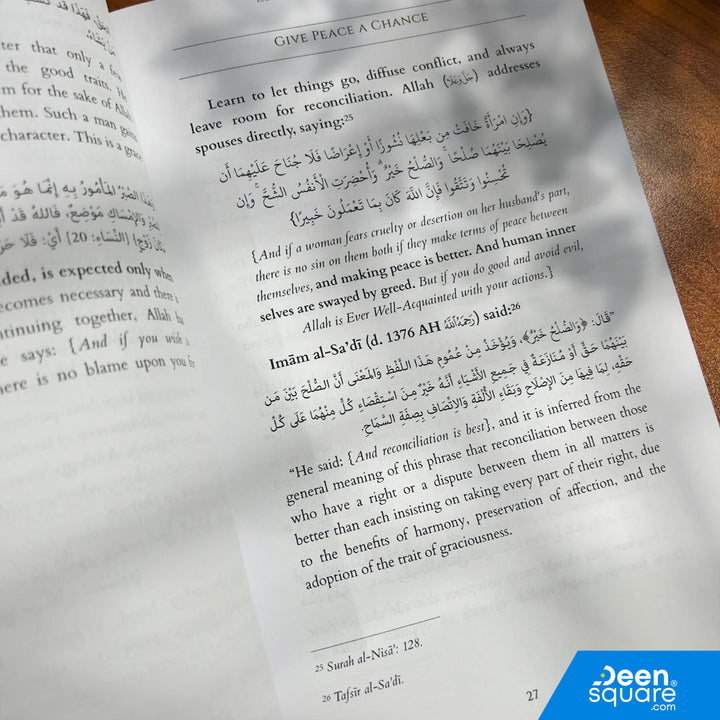 ter that only a few
the good traits. He
m for the sake of Allah
hem. Such a man gains
character. This is a great
ded, is expected only when
ecomes necessary and there is
ntinuing together, Allah ha
e says: {And if you wish
here is no blame upon you
GIVE PEACE A CHANCE
Learn to let things go, diffuse conflict, and always
leave room for reconciliation. Allah (جَلَّ وَعَلَا) addresses
spouses directly, saying:25
{وَإِنِ امْرَأَةٌ خَافَتْ مِن بَعْلِهَا نُشُوزًا أَوْ إِعْرَاضًا فَلَا جُنَاحَ عَلَيْهِمَا أَن
يُصْلِحَا بَيْنَهُمَا صُلْحًا ۚ وَالصُّلْحُ خَيْرٌ ۗ وَأُحْضِرَتِ الْأَنفُسُ الشُّحَّ ۚ وَإِن
تُحْسِنُوا وَتَتَّقُوا فَإِنَّ اللَّهَ كَانَ بِمَا تَعْمَلُونَ خَبِيرًا}
{And if a woman fears cruelty or desertion on her husband's part,
there is no sin on them both if they make terms of peace between
themselves, and making peace is better. And human inner
selves are swayed by greed. But if you do good and avoid evil,
Allah is Ever Well-Acquainted with your actions.}
Imām al-Sa'dī (d. 1376 AH رَحِمَهُ اللَّهُ) said:26
"قَالَ: ﴿وَالصُّلْحُ خَيْرٌ﴾، وَيُؤْخَذُ مِنْ عُمُومِ هَذَا اللَّفْظِ وَالْمَعْنَى أَنَّ الصُّلْحَ بَيْنَ مَن
بَيْنَهُمَا حَقٌّ أَوْ مُنَازَعَةٌ فِي جَمِيعِ الْأَشْيَاءِ أَنَّهُ خَيْرٌ مِنَ اسْتِقْصَاءِ كُلٍّ مِنْهُمَا عَلَى كُلِّ
حَقِّهِ، لِمَا فِيهَا مِنَ الْإِصْلَاحِ وَبَقَاءِ الْأُلْفَةِ وَالِاتِّصَافِ بِصِفَةِ السَّمَاحِ.
"He said: {And reconciliation is best}, and it is inferred from the
general meaning of this phrase that reconciliation between those
who have a right or a dispute between them in all matters is
better than each insisting on taking every part of their right, due
to the benefits of harmony, preservation of affection, and the
adoption of the trait of graciousness.
25 Surah al-Nisā': 128.
26 Tafsīr al-Sa'dī.
27
Deen
square®
.com